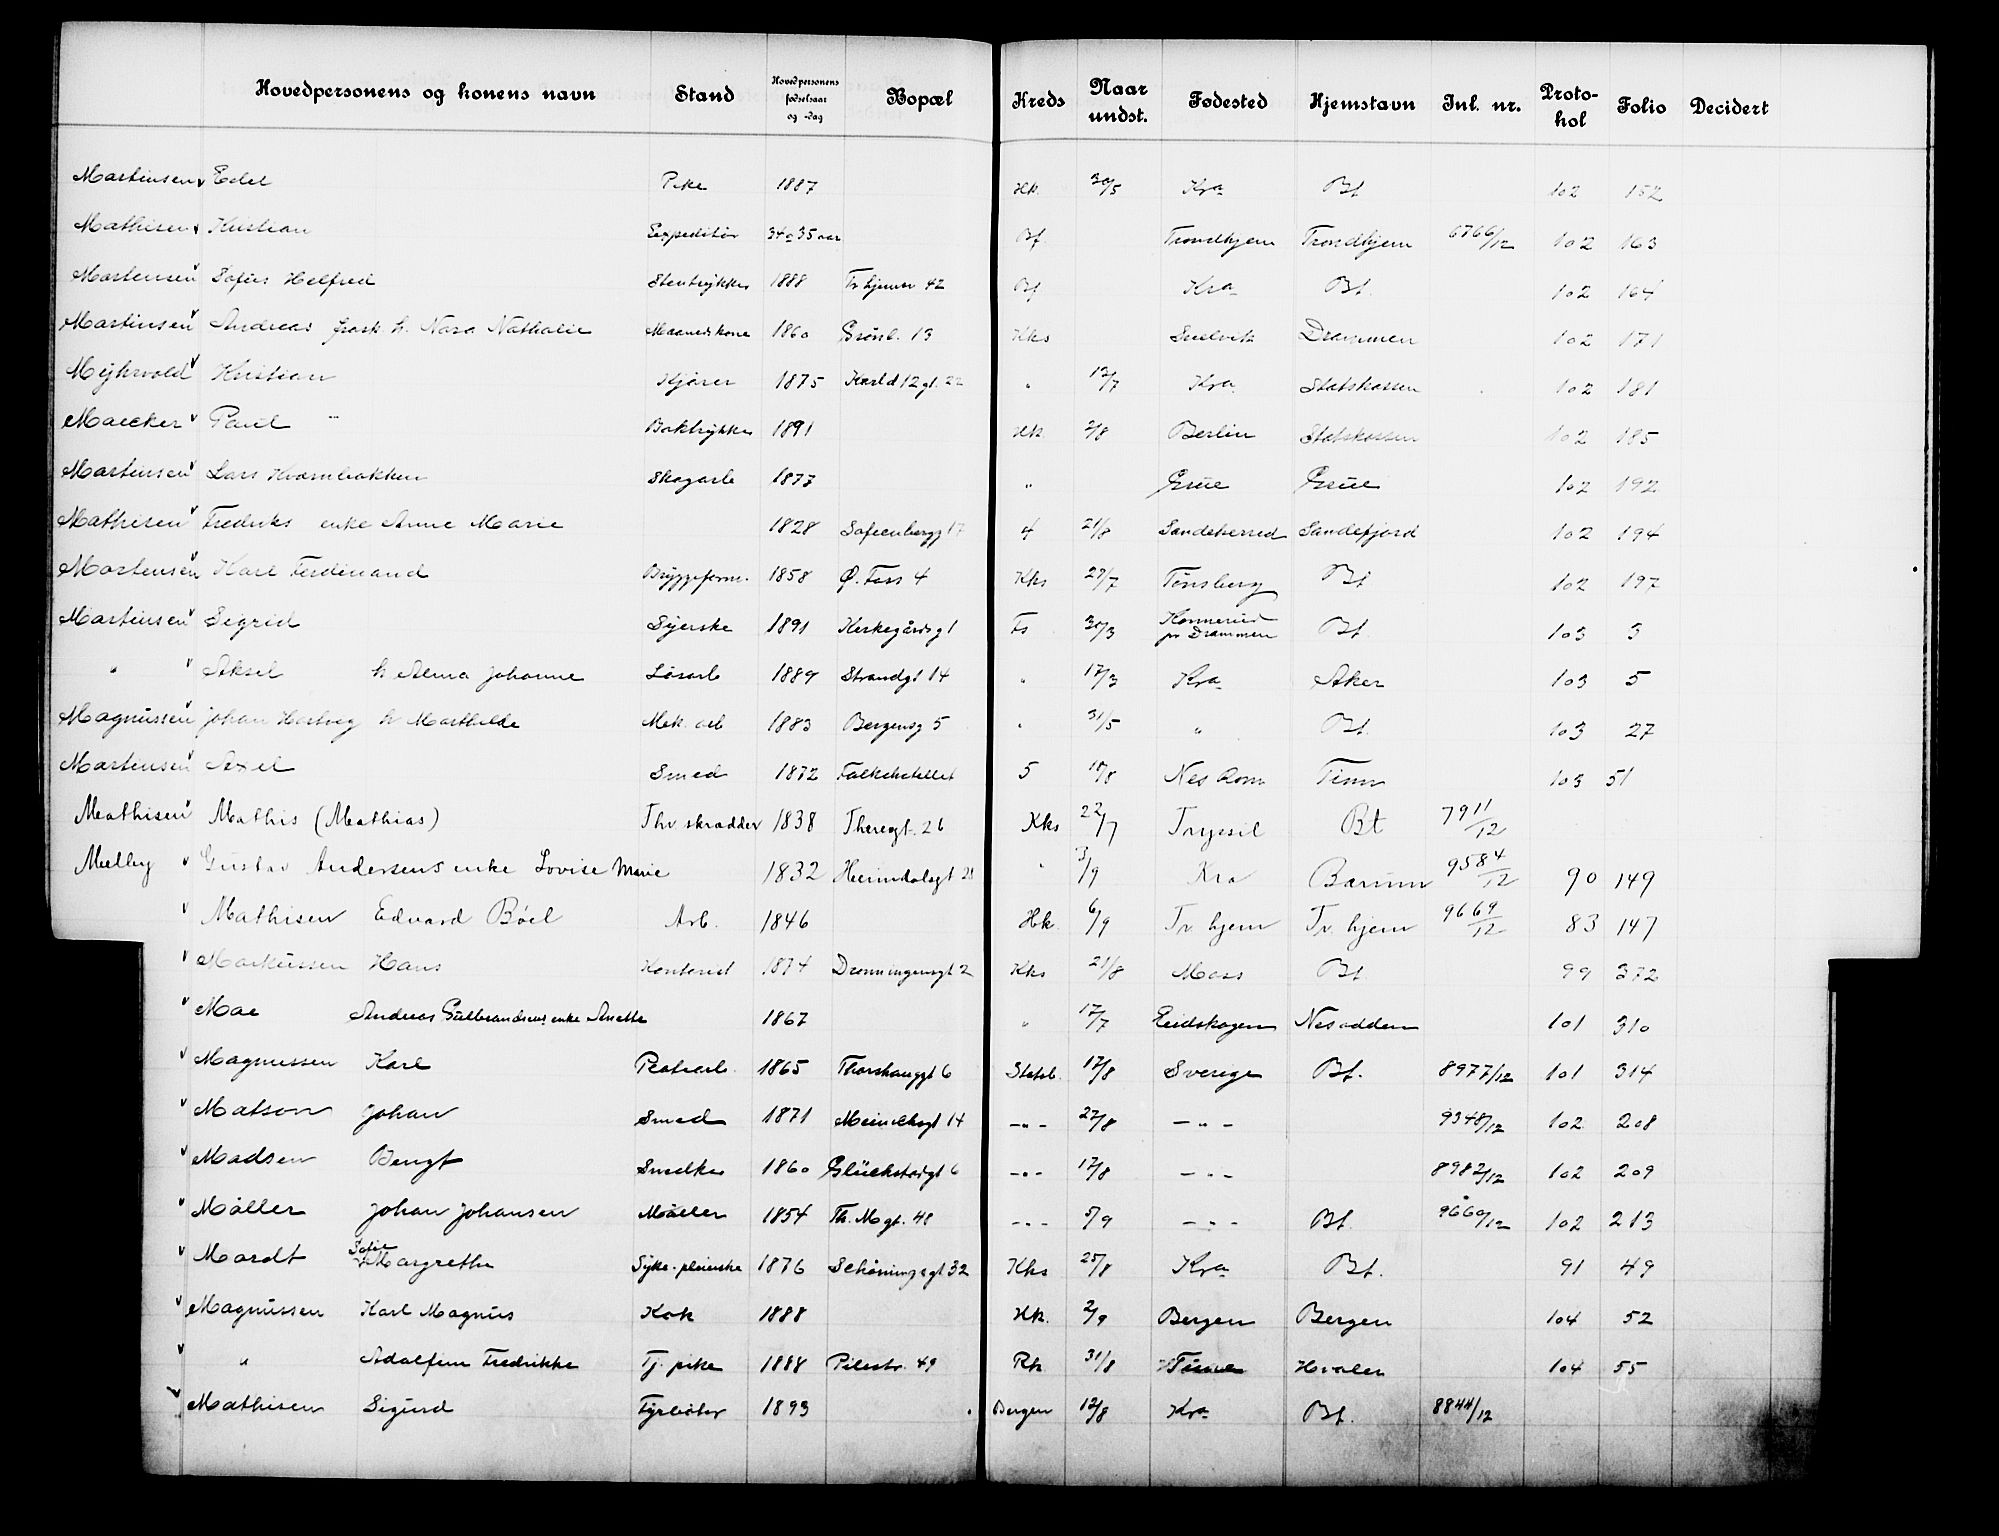 Hovedpersonens og konens navn Stand Hovedpersonens fødselsaar og -dag Bopæl Kreds Naar undst. Fødested Hjemstavn Jnl. nr. Protokol Folio Decidert
Martinsen Edel Pike 1887 Hk. 30/5 Kra Bf 102 152
Mathisen Kristian Expeditør 34 a 35 aar Bf Trondhjem Trondhjem 6766/12 102 163
Mortensen Sofus Helfred Stentrykker 1888 Tr hjemsv 42 Bf Kra Bf. 102 164
Martinsen Andreas frask. h. Nora Nathalie Maanedskone 1860 Grønl. 13 Kks Svelvik Drammen 102 171
Myhrvold Kristian Kjører 1875 Karl d 12 gt. 22 " 12/7 Kra Statskassen 102 181
Maecker Paul Boktrykker 1891 Hk 2/8 Berlin Statskassen 102 185
Martinsen Lars Kvernbakken Skogarb 1877 " Grue Grue 102 192
Mathisen Fredriks enke Anne Marie 1828 Sofienbergg 17 4 21/8 Sandeherred Sandefjord 102 194
Mortensen Karl Ferdinand Bryggeform. 1858 Ø. Foss 4 Kks 27/7 Tønsberg Bf 102 197
Martinsen Sigrid Syerske 1891 Kirkegårdsg 1 Fs 30/3 Konnerud pr Drammen Bf. 103 3
" Aksel h Alma Johanne Løsarb 1889 Strandgt 14 " 17/3 Kra Aker 103 5
Magnussen Johan Hartvig h Marthilde Mek. arb 1883 Bergensg 5 " 31/5 " Bf. 103 27
Martinsen Axel Smed 1872 Folkehotellet 5 10/8 Nes Rom Tinn 103 51
Mathisen Mathis (Mathias) Fhv skrædder 1838 Theregt. 26 Kks 22/7 Trysil Bt 7911/12
Melby Gustav Andersens enke Lovise Marie 1832 Heimdalsgt 28 " 3/9 Kra Bærum 9584/12 90 149
Mathisen Edvard Bøel Arb. 1846 Hk. 6/9 Tr. hjem Tr. hjem 9669/12 83 147
Markussen Hans Kontorist 1874 Dronningensgt 2 Kks 21/8 Moss Bt. 99 372
Moe Andreas Gulbrandsens enke Anette 1867 " 17/7 Eidskogen Nesodden 101 310
Magnussen Karl 1865 Thorshauggt 6 Statsb. 17/8 Sverige Bf. 8977/12 101 314
Matson Johan Smed 1871 Meinckegt 14 -"- 27/8 -"- 9348/12 102 208
Madsen Bengt Snedker 1860 Glückstadgt 6 -"- 17/8 -"- 8982/12 102 209
Møller Johan Johansen Møller 1854 Th. M gt. 48 -"- 5/9 -"- Bt. 9660/12 102 213
Mordt Sofie Margrethe Syke-pleierske 1876 Schøningsgt 32 Kks 25/8 Kra Bf. 91 49
Magnussen Karl Magnus Kok 1888 Hk. 2/9 Bergen Bergen 104 52
" Adolfine Fredrikke Tj. pike 1888 Pilestr. 49 Rk 31/8 Hvaler 104 55
Mathisen Sigurd Fyrbøter 1893 Bergen 12/8 Kra Bf. 8844/12